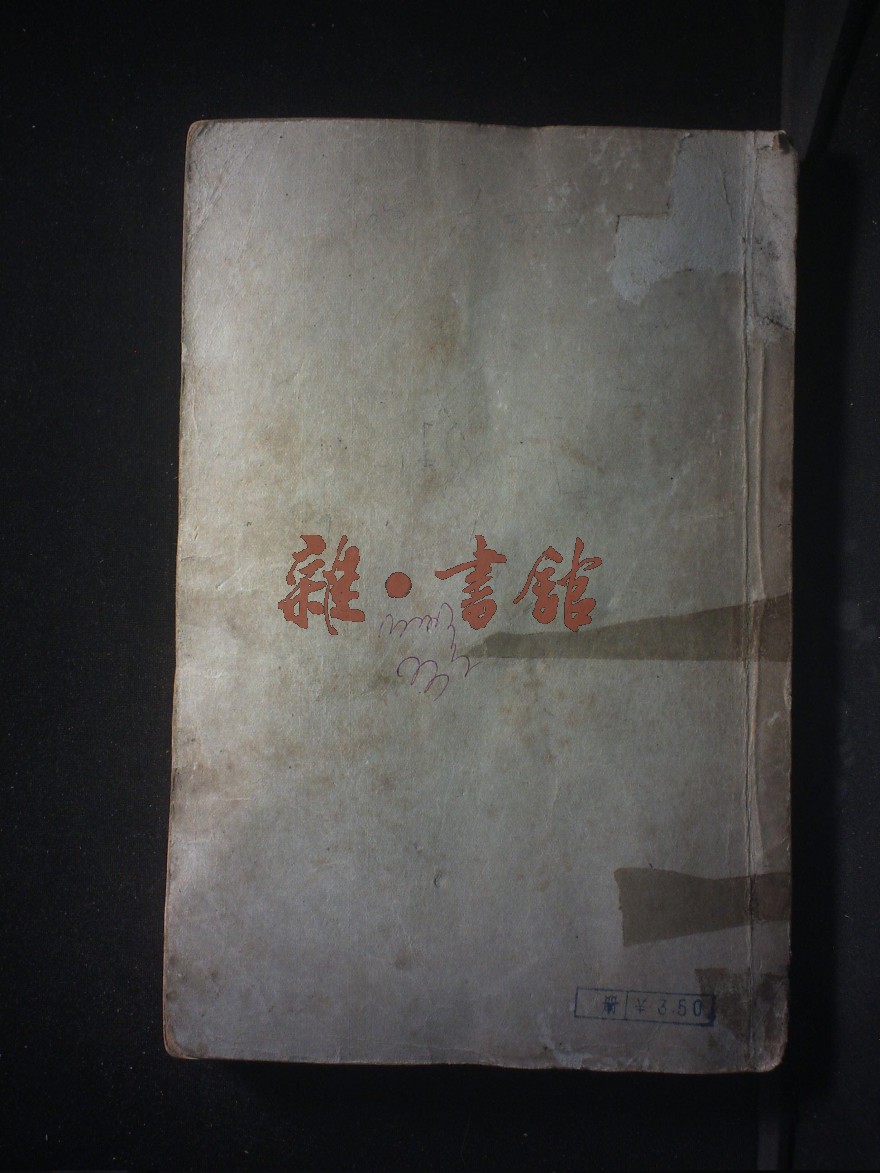 雜·書館
册 ¥3.50